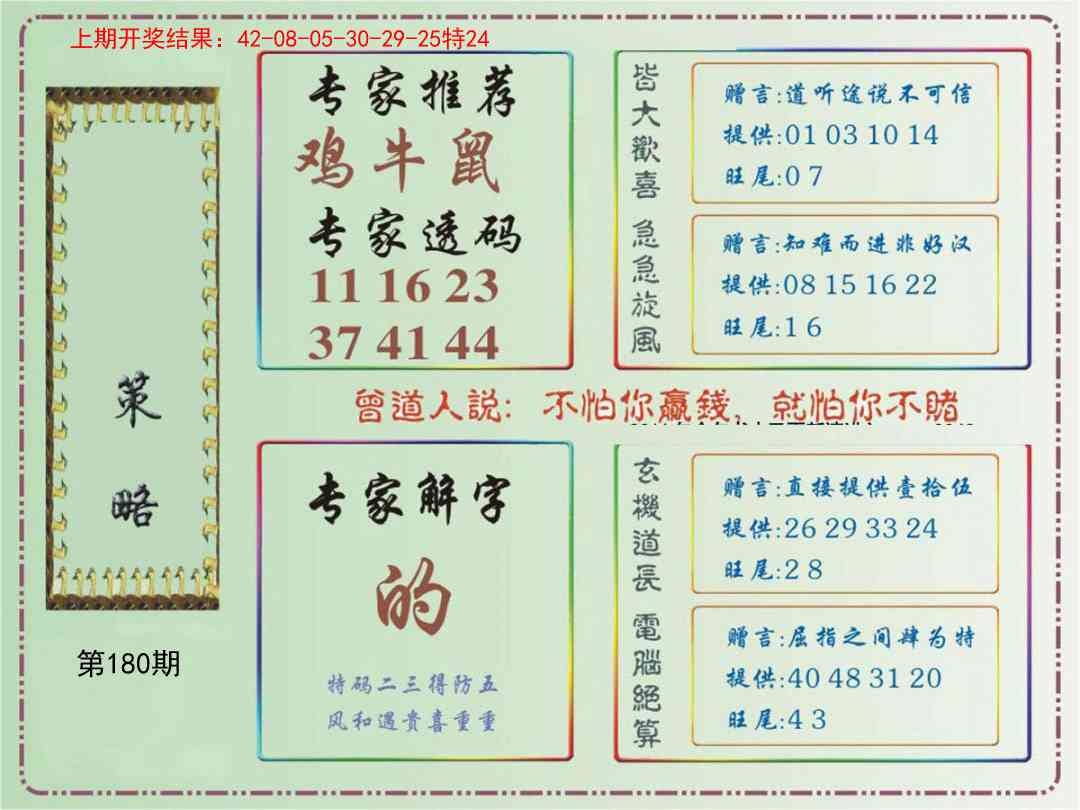 上期开奖结果：42-08-05-30-29-25特24
策略
第180期
专家推荐
鸡牛鼠
专家透码
11 16 23
37 41 44
皆大歡喜
赠言:道听途说不可信
提供:01 03 10 14
旺尾:0 7
急急旋風
赠言:知难而进非好汉
提供:08 15 16 22
旺尾:1 6
曾道人説：不怕你贏錢，就怕你不賭
专家解字
的
特码二三得防五
风和遇贵喜重重
玄機道長
赠言:直接提供壹拾伍
提供:26 29 33 24
旺尾:2 8
電腦絕算
赠言:屈指之间肆为特
提供:40 48 31 20
旺尾:4 3